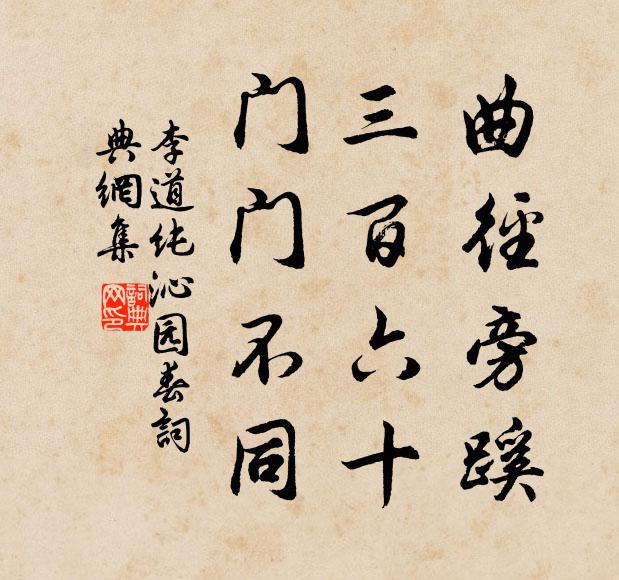 曲径旁蹊
三百六十
门门不同
李道纯沁园春詞
典網集
詞典
网印